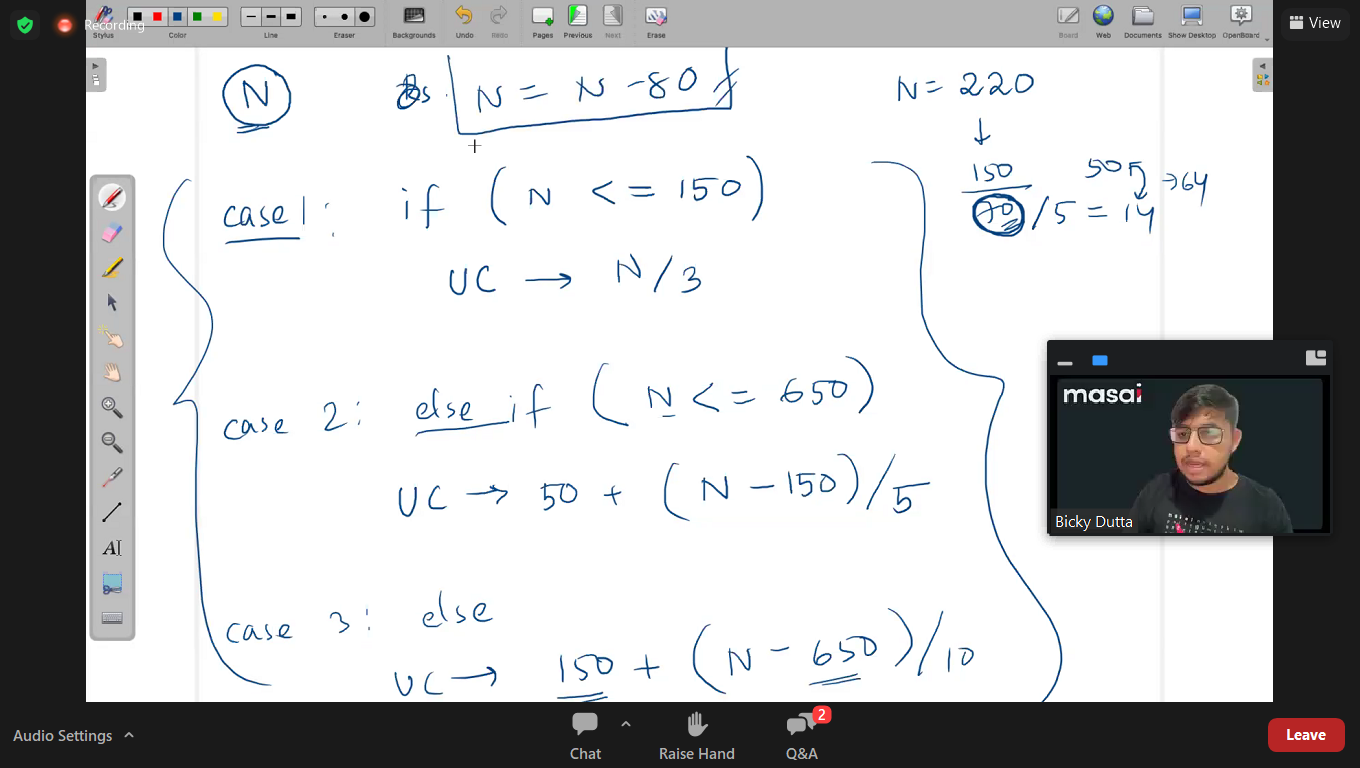 Recording
Stylus
Color
Line
Eraser
Backgrounds
Undo
Redo
Pages
Previous
Next
Erase
Board
Web
Documents
Show Desktop
OpenBoard
View
N
N = N - 80
N = 220
150
70 / 5 = 14
50
→ 64
case 1: if ( N <= 150 )
UC → N / 3
case 2: else if ( N <= 650 )
UC → 50 + ( N - 150 ) / 5
case 3: else
UC → 150 + ( N - 650 ) / 10
masai
Bicky Dutta
Audio Settings
Chat
Raise Hand
2
Q&A
Leave